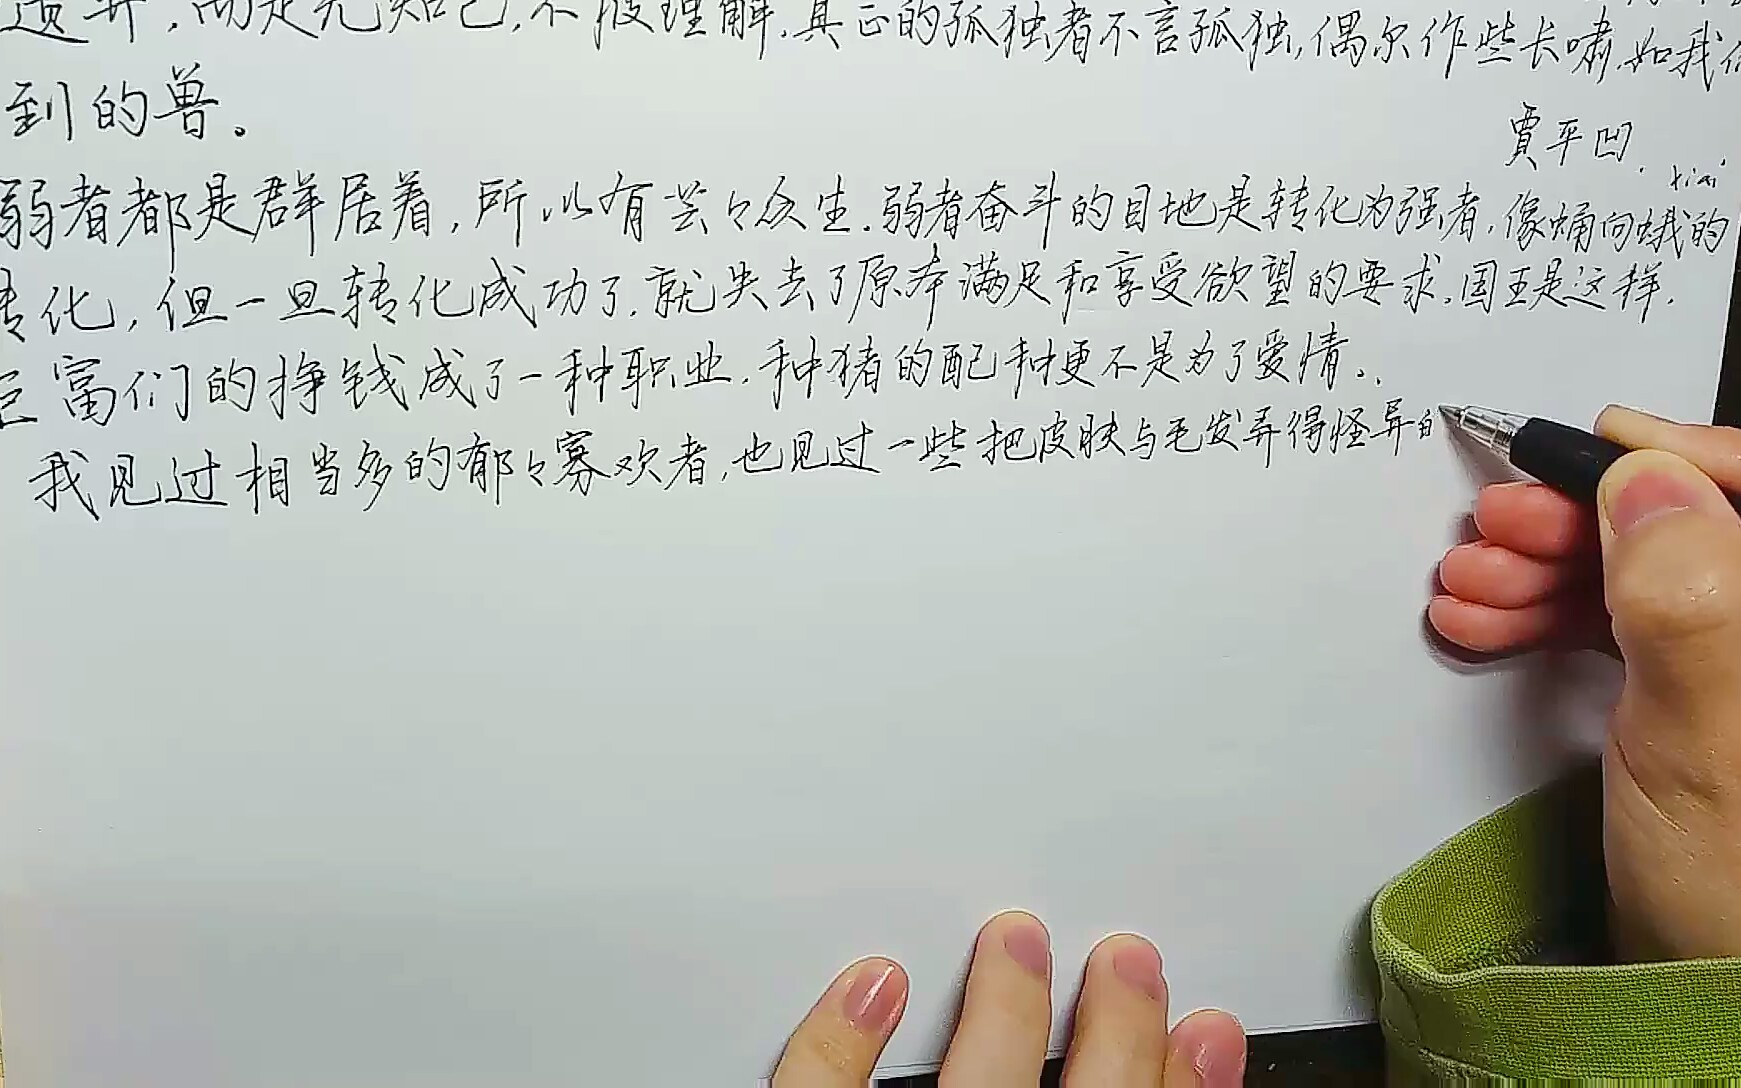 遗弃,而是无知己,不被理解.真正的孤独者不言孤独,偶尔作些长啸.如我们
到的兽。
賈平凹.
弱者都是群居着,所以有芸々众生.弱者奋斗的目地是转化为强者,像蛹向蛾的
转化,但一旦转化成功了.就失去了原本满足和享受欲望的要求.国王是这样.
巨富们的挣钱成了一种职业.种猪的配种更不是为了爱情..
我见过相当多的郁々寡欢者,也见过一些把皮肤与毛发弄得怪异的